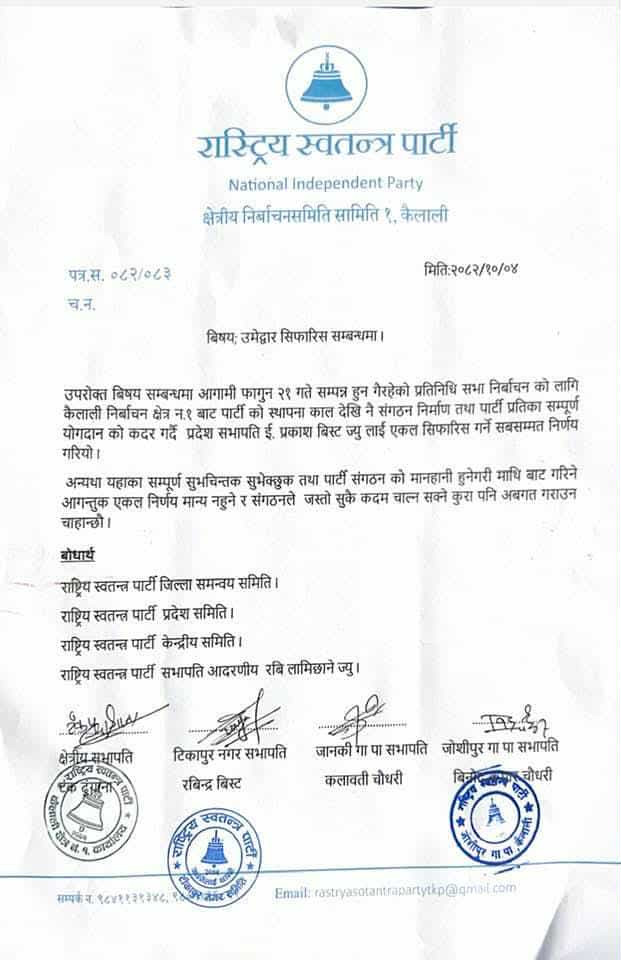 रास्ट्रिय स्वतन्त्र पार्टी
National Independent Party
क्षेत्रीय निर्बाचनसमिति सामिति १, कैलाली
पत्र.स. ०८२/०८३
मिति:२०८२/१०/०४
च.न.
बिषय; उमेद्वार सिफारिस सम्बन्धमा ।
उपरोक्त बिषय सम्बन्धमा आगामी फागुन २१ गते सम्पन्न हुन गैरहेको प्रतिनिधि सभा निर्बाचन को लागि
कैलाली निर्बाचन क्षेत्र न.१ बाट पार्टी को स्थापना काल देखि नै संगठन निर्माण तथा पार्टी प्रतिका सम्पूर्ण
योगदान को कदर गर्दै प्रदेश सभापति ई. प्रकाश बिस्ट ज्यु लाई एकल सिफारिस गर्ने सबसम्मत निर्णय
गरियो ।
अन्यथा यहाका सम्पूर्ण सुभचिन्तक सुभेक्छुक तथा पार्टी संगठन को मानहानी हुनेगरी माथि बाट गरिने
आगन्तुक एकल निर्णय मान्य नहुने र संगठनले जस्तो सुकै कदम चाल्न सक्ने कुरा पनि अबगत गराउन
चाहान्छौ ।
बोधार्थ
राष्ट्रिय स्वतन्त्र पार्टी जिल्ला समन्वय समिति ।
राष्ट्रिय स्वतन्त्र पार्टी प्रदेश समिति ।
राष्ट्रिय स्वतन्त्र पार्टी केन्द्रीय समिति ।
राष्ट्रिय स्वतन्त्र पार्टी सभापति आदरणीय रबि लामिछाने ज्यु ।
क्षेत्रीय सभापति टिकापुर नगर सभापति जानकी गा पा सभापति जोशीपुर गा पा सभापति
टेक रबिन्द्र बिस्ट कलावती चौधरी चौधरी
राष्ट्रिय स्वतन्त्र पार्टी
राष्ट्रिय स्वतन्त्र पार्टी
टीकापुर नगर समिति
राष्ट्रिय स्वतन्त्र पार्टी
जोशीपुर गा.पा. कैलाली
सम्पर्क न. ९८४११३९३४८,
Email: rastryasotantrapartytkp@gmail.com